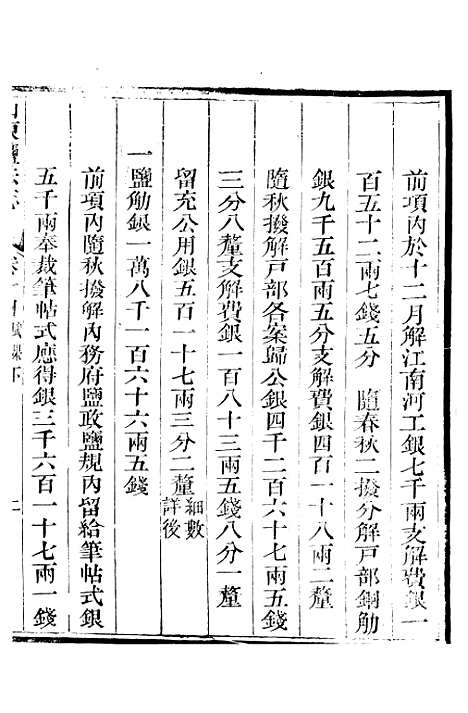 前項內於十二月解江南河工銀七千兩支解費銀一
百五十二兩七錢五分　隨春秋二撥分解戸部銅觔
銀九千五百兩五分支解費銀四百一十八兩二釐
隨秋撥解戸部各案歸公銀四千二百六十七兩五錢
三分八釐支解費銀一百八十三兩五錢八分一釐
留充公用銀五百一十七兩三分二釐細數詳後
一鹽觔銀一萬八千一百六十六兩五錢
前項內隨秋撥解內務府鹽政鹽規內留給筆帖式銀
五千兩奉裁筆帖式應得銀三千六百一十七兩一錢
山東鹽法志　卷十四　課下　二